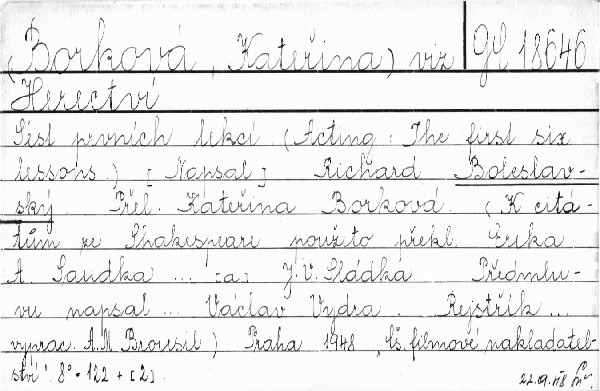 (Borková, Kateřina) viz Gl 18646
Herectví
Šest prvních lekcí (Acting: The first six
lessons.) [Napsal] Richard Boleslav-
ský. Přel. Kateřina Borková (K citá-
tům ze Shakespeare použito překl. Erika
A. Saudka ... [a] J. V. Sládka Předmlu-
vu napsal ... Václav Vydra. Rejstřík ...
vyprac. A. M. Brousil) Praha 1948, Čs. filmové nakladatel-
ství. 8° 122 + [2].
22.9.48